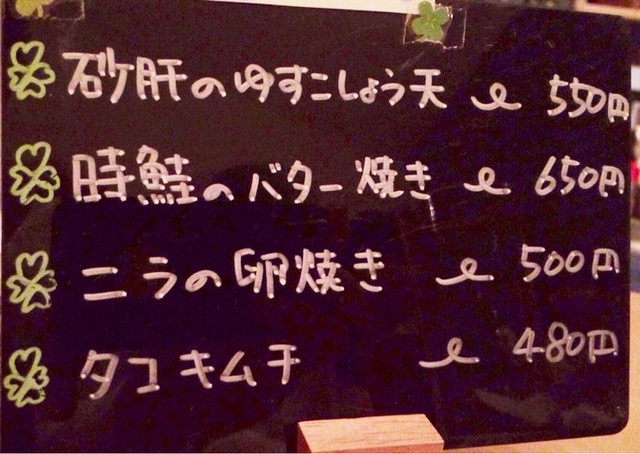 砂肝のゆずこしょう天 550円
時鮭のバター焼き 650円
ニラの卵焼き 500円
タコキムチ 480円